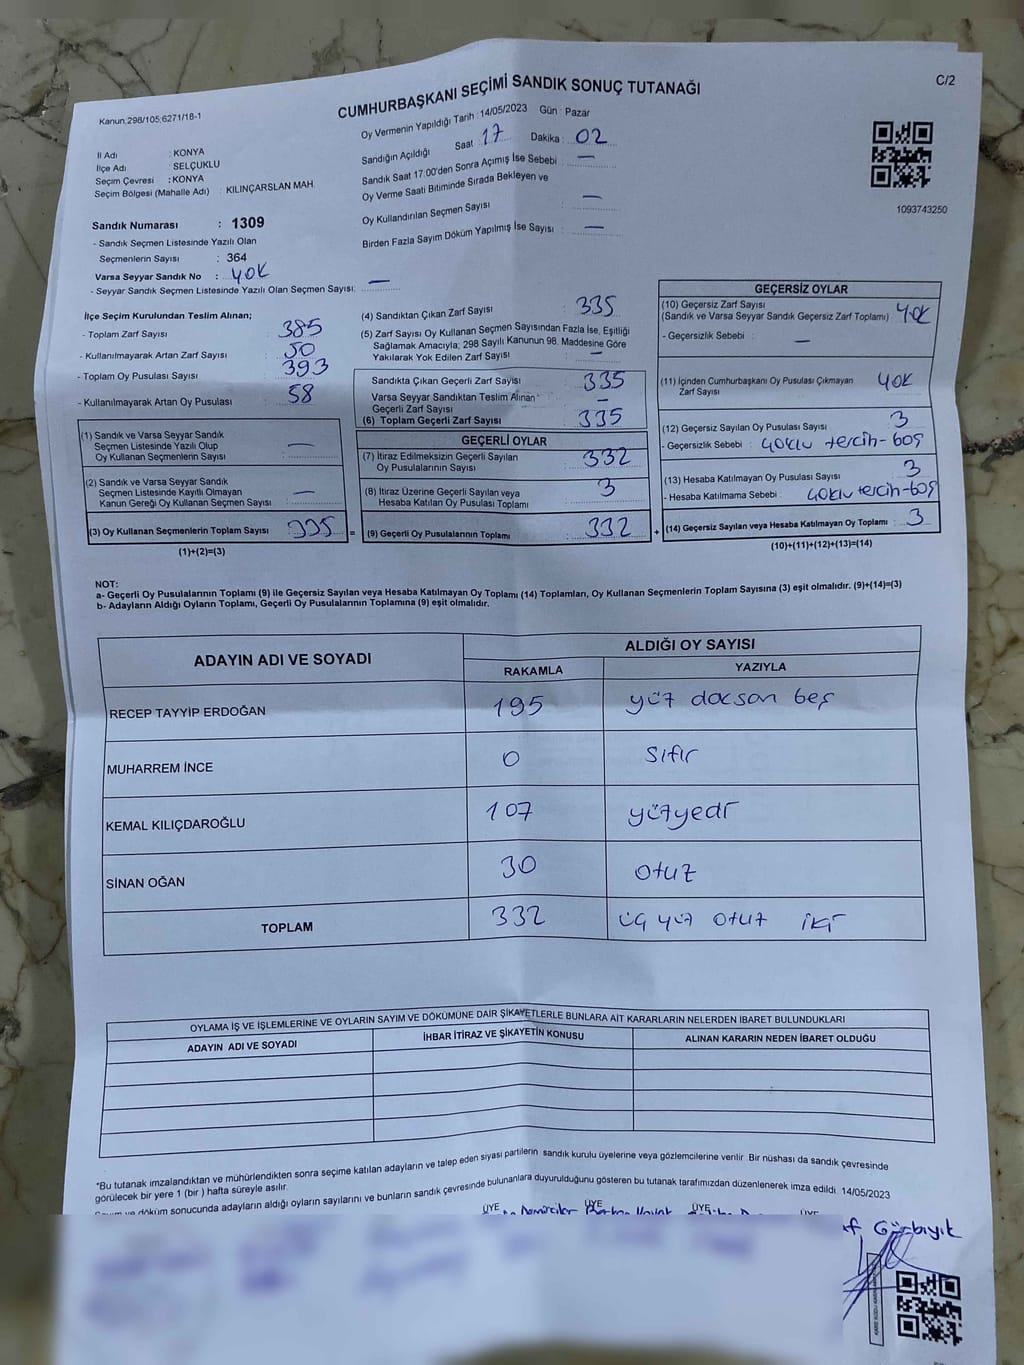 CUMHURBAŞKANI SEÇİMİ SANDIK SONUÇ TUTANAĞI
C/2
Kanun,298/105;6271/18-1
Oy Vermenin Yapıldığı Tarih : 14/05/2023 Gün : Pazar
Sandığın Açıldığı Saat : 17 Dakika : 02
Sandık Saat 17.00'den Sonra Açımış İse Sebebi : —
Oy Verme Saati Bitiminde Sırada Bekleyen ve
Oy Kullandırılan Seçmen Sayısı —
Birden Fazla Sayım Döküm Yapılmış İse Sayısı : —
1093743250
İl Adı : KONYA
İlçe Adı : SELÇUKLU
Seçim Çevresi : KONYA
Seçim Bölgesi (Mahalle Adı) : KILINÇARSLAN MAH.
Sandık Numarası : 1309
- Sandık Seçmen Listesinde Yazılı Olan
Seçmenlerin Sayısı : 364
Varsa Seyyar Sandık No : YOK
- Seyyar Sandık Seçmen Listesinde Yazılı Olan Seçmen Sayısı: —
İlçe Seçim Kurulundan Teslim Alınan;
- Toplam Zarf Sayısı : 385
- Kullanılmayarak Artan Zarf Sayısı : 50
- Toplam Oy Pusulası Sayısı : 393
- Kullanılmayarak Artan Oy Pusulası : 58
(1) Sandık ve Varsa Seyyar Sandık
Seçmen Listesinde Yazılı Olup
Oy Kullanan Seçmenlerin Sayısı : —
(2) Sandık ve Varsa Seyyar Sandık
Seçmen Listesinde Kayıtlı Olmayan
Kanun Gereği Oy Kullanan Seçmen Sayısı : —
(3) Oy Kullanan Seçmenlerin Toplam Sayısı : 335 =
(1)+(2)=(3)
(4) Sandıktan Çıkan Zarf Sayısı : 335
(5) Zarf Sayısı Oy Kullanan Seçmen Sayısından Fazla İse, Eşitliği
Sağlamak Amacıyla; 298 Sayılı Kanunun 98. Maddesine Göre
Yakılarak Yok Edilen Zarf Sayısı : —
Sandıkta Çıkan Geçerli Zarf Sayısı : 335
Varsa Seyyar Sandıktan Teslim Alınan
Geçerli Zarf Sayısı : —
(6) Toplam Geçerli Zarf Sayısı : 335
GEÇERLİ OYLAR
(7) İtiraz Edilmeksizin Geçerli Sayılan
Oy Pusulalarının Sayısı : 332
(8) İtiraz Üzerine Geçerli Sayılan veya
Hesaba Katılan Oy Pusulası Toplamı : 3
(9) Geçerli Oy Pusulalarının Toplamı : 332 +
GEÇERSİZ OYLAR
(10) Geçersiz Zarf Sayısı
(Sandık ve Varsa Seyyar Sandık Geçersiz Zarf Toplamı) : YOK
- Geçersizlik Sebebi : —
(11) İçinden Cumhurbaşkanı Oy Pusulası Çıkmayan
Zarf Sayısı : YOK
(12) Geçersiz Sayılan Oy Pusulası Sayısı : 3
- Geçersizlik Sebebi : çoklu tercih-boş
(13) Hesaba Katılmayan Oy Pusulası Sayısı : 3
- Hesaba Katılmama Sebebi : çoklu tercih-boş
(14) Geçersiz Sayılan veya Hesaba Katılmayan Oy Toplamı : 3
(10)+(11)+(12)+(13)=(14)
NOT:
a- Geçerli Oy Pusulalarının Toplamı (9) ile Geçersiz Sayılan veya Hesaba Katılmayan Oy Toplamı (14) Toplamları, Oy Kullanan Seçmenlerin Toplam Sayısına (3) eşit olmalıdır. (9)+(14)=(3)
b- Adayların Aldığı Oyların Toplamı, Geçerli Oy Pusulalarının Toplamına (9) eşit olmalıdır.
ADAYIN ADI VE SOYADI
ALDIĞI OY SAYISI
RAKAMLA YAZIYLA
RECEP TAYYİP ERDOĞAN 195 yüz doksan beş
MUHARREM İNCE 0 sıfır
KEMAL KILIÇDAROĞLU 107 yüzyedi
SİNAN OĞAN 30 otuz
TOPLAM 332 üç yüz otuz iki
OYLAMA İŞ VE İŞLEMLERİNE VE OYLARIN SAYIM VE DÖKÜMÜNE DAİR ŞİKAYETLERLE BUNLARA AİT KARARLARIN NELERDEN İBARET BULUNDUKLARI
ADAYIN ADI VE SOYADI İHBAR İTİRAZ VE ŞİKAYETİN KONUSU ALINAN KARARIN NEDEN İBARET OLDUĞU
*Bu tutanak imzalandıktan ve mühürlendikten sonra seçime katılan adayların ve talep eden siyasi partilerin sandık kurulu üyelerine veya gözlemcilerine verilir. Bir nüshası da sandık çevresinde
görülecek bir yere 1 (bir) hafta süreyle asılır.
döküm sonucunda adayların aldığı oyların sayılarını ve bunların sandık çevresinde bulunanlara duyurulduğunu gösteren bu tutanak tarafımızdan düzenlenerek imza edildi. 14/05/2023
ÜYE ÜYE ÜYE ÜYE
Gürbıyık